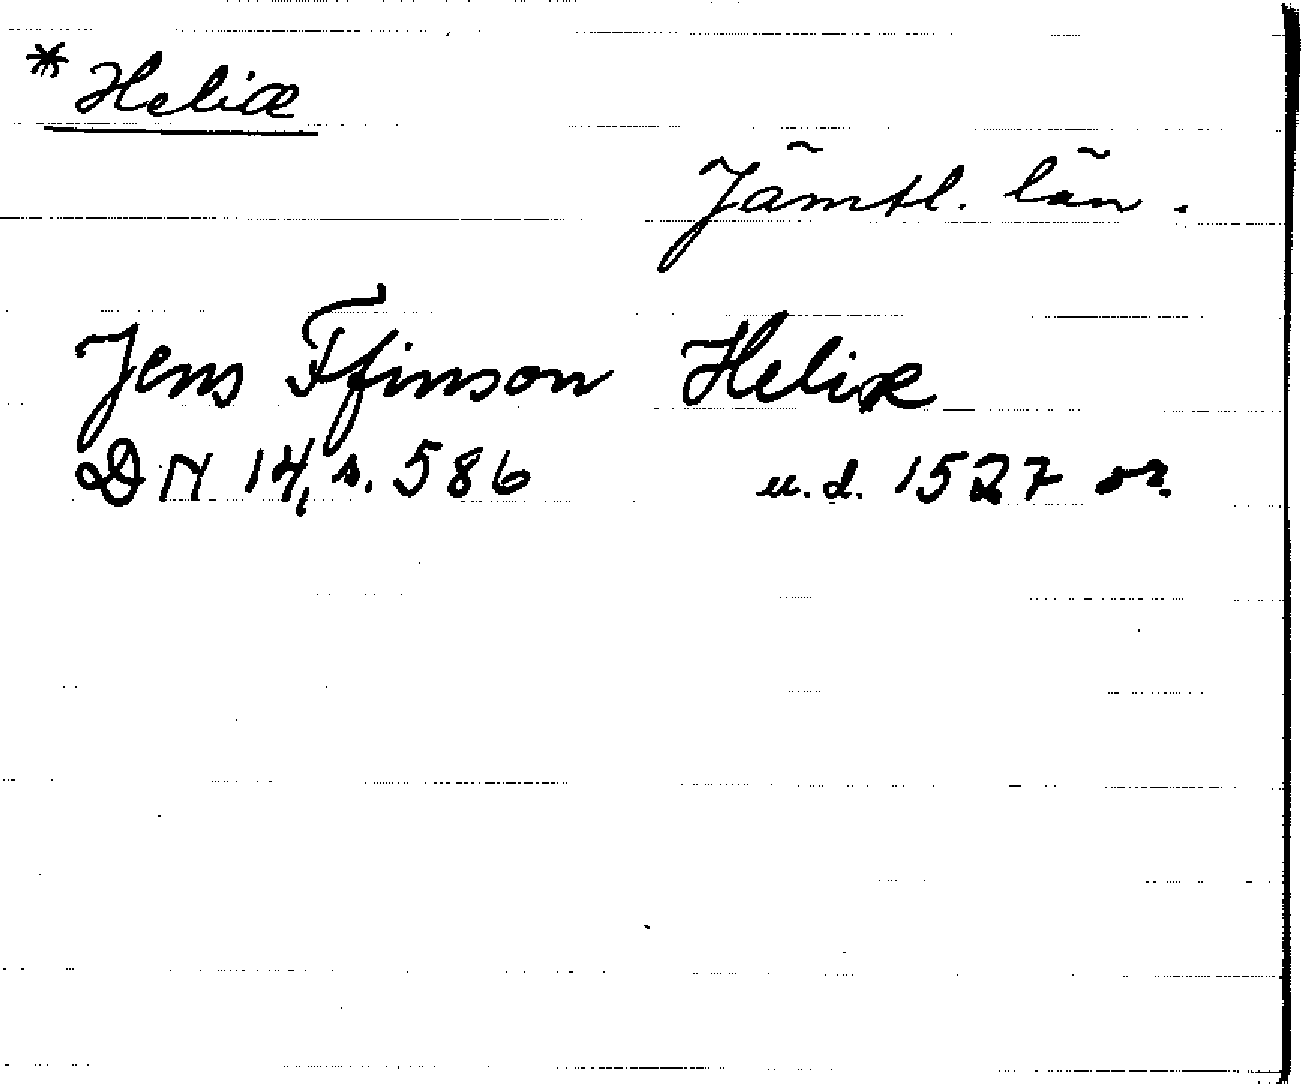 * Heliæ
Jämtl. län.
Jens Ffinson Heliæ
DN 14, s. 586 u.d. 1527 or.